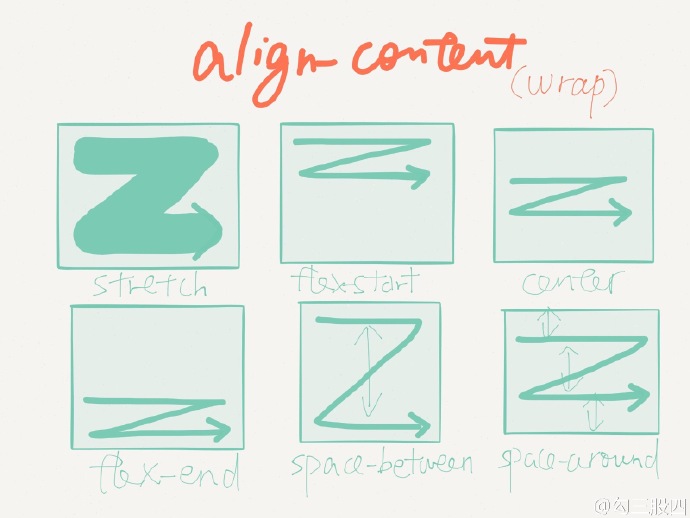 align-content
(wrap)
stretch
flex-start
center
flex-end
space-between
space-around
@勾三股四